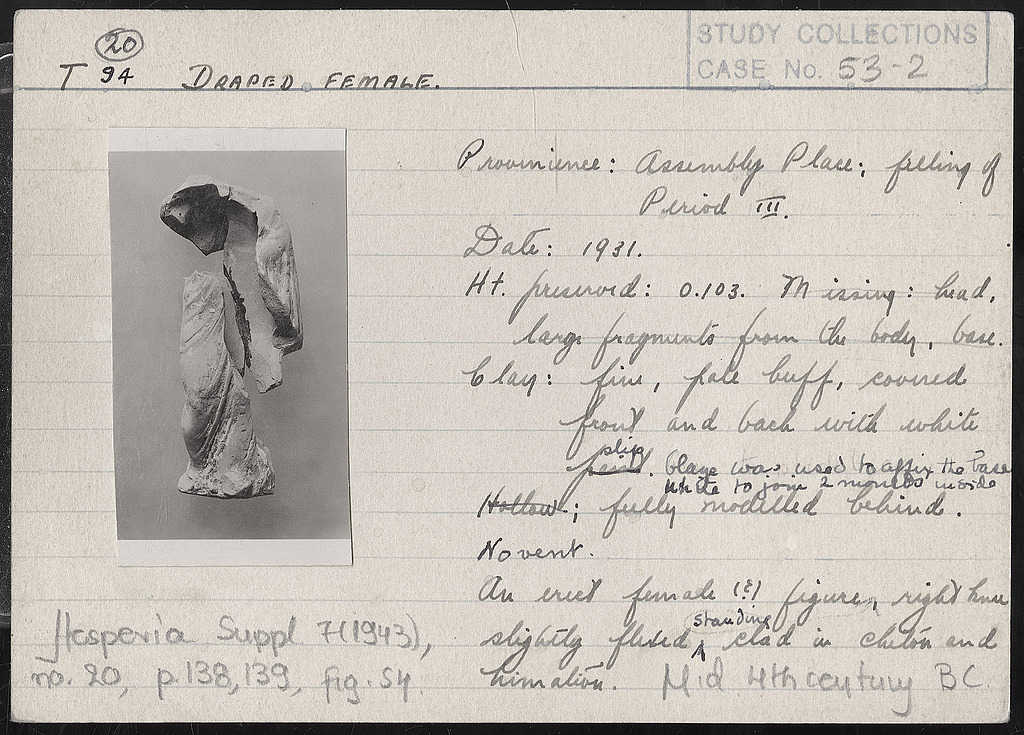 20
T 94 DRAPED FEMALE.
STUDY COLLECTIONS
CASE No. 53-2
Provinience: Assembly Place; filling of
Period III.
Date: 1931.
Ht. preserved: 0.103. Missing: head,
large fragments from the body, base.
Clay: fine, pale buff, covered
front and back with white
slip
paint. Glaze was used to affix the base
white to join 2 moulds inside
Hollow; fully modelled behind.
No vent.
An erect female (?) figure, right knee
standing
slightly flexed, clad in chiton and
himation. Mid 4th century BC.
Hesperia Suppl 7 (1943),
no. 20, p. 138, 139, fig. 54